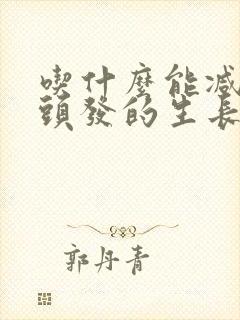 喫什麼能减
頭發的生長
郭丹青